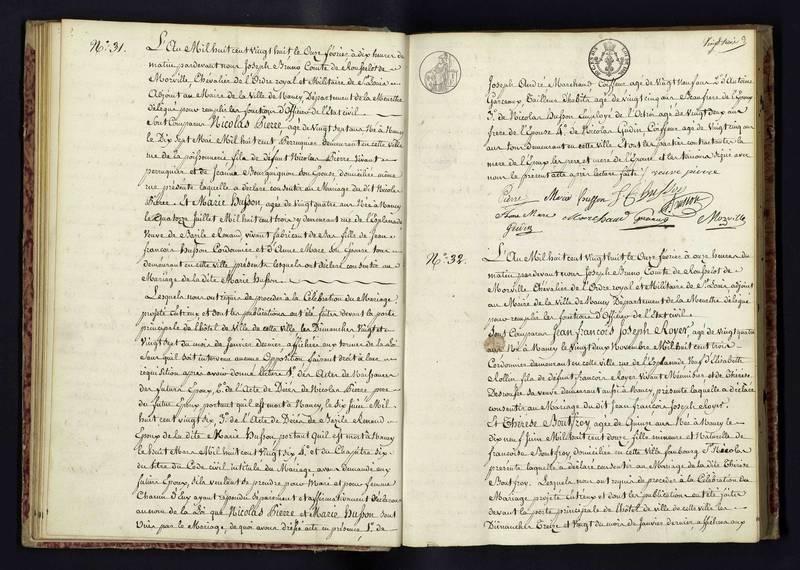 N.º 31.
L'An Mil huit cent vingt huit le Onze février à dix heures du
matin pardevant nous Joseph Bruno Comte de Rousselot de
Morville, Chevalier de l'Ordre royal et Militaire de
Adjoint au Maire de la Ville de Nancy, Département de la Meurthe
délégué pour remplir les fonctions d'Officier de l'état civil.
Sont Comparus Nicolas Pierre agé de vingt sept ans Né à Nancy
le Dix Sept Mai Mil huit cent Perruquier demeurant en cette Ville
rue de la poissonnerie, fils de défunt Nicolas Pierre vivant
perruquier et de Jeanne Bourguignon son Epouse, domiciliée même
rue présente laquelle a déclaré consentir au Mariage dudit Nicolas
Pierre. Et Marie Husson, agée de vingt quatre ans Née à Nancy
le quatorze Juillet Mil huit cent trois demeurant rue de l'Esplanade
Veuve de Basile Renaud, vivant fabricant de Bas fille de Jean
françois Husson Cordonnier et d'Anne Marc son Epouse tous
demeurant en cette Ville présents lesquels ont déclaré consentir au
Mariage de ladite Marie Husson
Lesquels nous ont requis de procéder à la Célébration du Mariage
projeté entr'eux et dont les publications ont été faites devant la porte
principale de l'hôtel de Ville de cette ville, les Dimanches Vingt et
Vingt Sept du mois de Janvier dernier affichées aux termes de la loi
Sans qu'il soit intervenu aucune Opposition faisant droit à leur
réquisition après avoir donné lecture 1.º des Actes de Naissance
des futurs Epoux, 2.º de l'Acte de Décès de Nicolas Pierre pere
du futur Epoux portant qu'il est mort à Nancy, le dix Juin Mil
huit cent vingt six, 3.º de l'Acte de Décès de Basile Renaud
Epoux de la dite Marie Husson, portant qu'il est mort à Nancy
le huit Mars Mil huit cent vingt six 4.º et du Chapitre Six
du titre du Code civil, intitulé du Mariage, avons Demandé aux
futurs Epoux, s'ils veulent se prendre pour Mari et pour femme
Chacun d'Eux ayant répondu séparément et affirmativement Déclarons
au nom de la Loi que Nicolas Pierre et Marie Husson sont
Unis par le Mariage, de quoi avons dressé acte en présence, 1.º de
Vingt trois
Joseph André Marchand Coiffeur agé de vingt neuf ans 2.º d'Antoine
Garceaux Tailleur d'habits agé de vingt cinq ans Beaufrere de l'Epoux
3.º de Nicolas Husson Employé de l'Octroi agé de vingt deux ans
frere de l'Epouse 4.º de Nicolas Guérin Coiffeur agé de vingt cinq ans
tous demeurant en cette Ville Et ont les parties contractantes la
mere de l'Epoux les pere et mere de l'Epouse et les témoins signé avec
nous le présent acte après lecture faite. veuve pierre
Pierre Marie husson
Anne Marc Marchand Garceaux Husson Morville
Guérin
N.º 32.
L'An Mil huit cent vingt huit le Onze février à onze heures du
matin pardevant nous Joseph Bruno Comte de Rousselot de
Morville Chevalier de l'Ordre royal et Militaire de adjoint
au Maire de la Ville de Nancy Département de la Meurthe délégué
pour remplir les fonctions d'Officier de l'Etat civil
Sont Comparus Jean françois Joseph Royer, agé de vingt quatre
ans Né à Nancy le vingt deux Novembre Mil huit cent trois
Cordonnier demeurant en cette ville rue de l'Esplanade Veuf d'Elisabeth
Rollin fils de défunt françois Royer vivant Menuisier et de Thérèse
sa veuve demeurant aussi à Nancy, présente laquelle a déclaré
consentir au Mariage dudit Jean françois Joseph Royer.
Et Therese Bontfroy, agée de Quinze ans Née à Nancy le
dix neuf Juin Mil huit cent douze fille mineure et Naturelle de
françoise Bontfroy, domiciliée en cette Ville faubourg S.t Nicolas
présente laquelle a déclaré consentir au Mariage de ladite Thérèse
Bontfroy. Lesquels nous ont requis de procéder à la Célébration du
Mariage projeté Entr'eux et dont les publications ont été faites
devant la porte principale de l'hôtel de ville de cette ville les
Dimanches Treize et Vingt du mois de Janvier dernier, affichées aux